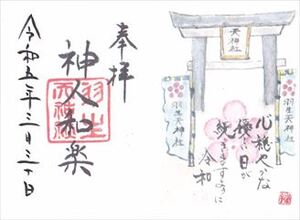 奉拝
神人和楽
羽生天神社
令和五年三月三十日
天神社
羽生天神社
羽生天神社
心穏やかな
優しい日が
続きますように
令和